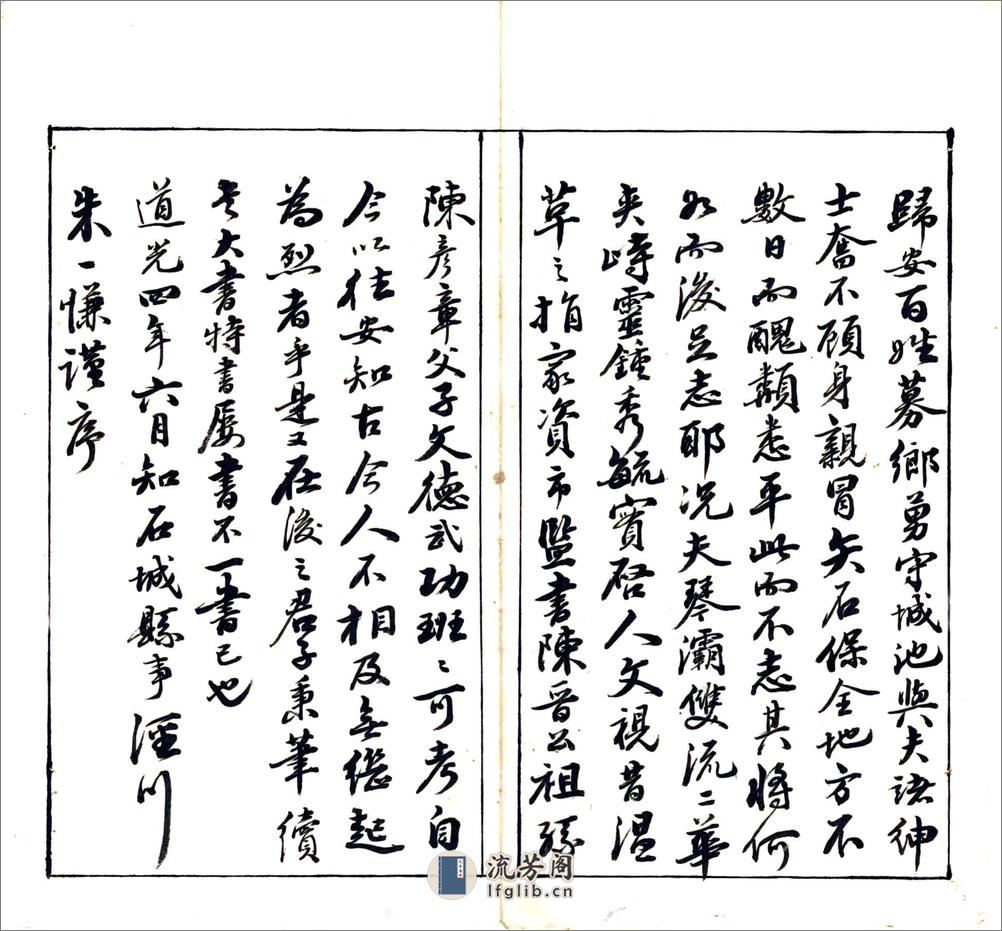 歸安百姓募鄉勇守城池與夫諸紳
士奮不顧身親冒矢石保全地方不
數日而醜類悉平此而不志其將何
如而後足志耶况夫琴灞雙流二華
夾峙靈鍾秀毓實啓人文視昔温
草之捐家資市監書陳晋公祖孫
陳彦章父子文德武功班〻可考自
今以往安知古今人不相及無繼起
為烈者乎是又在後之君子秉筆續
大書特書屡書不一書已也
道光四年六月知石城縣事涇川
朱一慊謹序
流芳阁
lfglib.cn